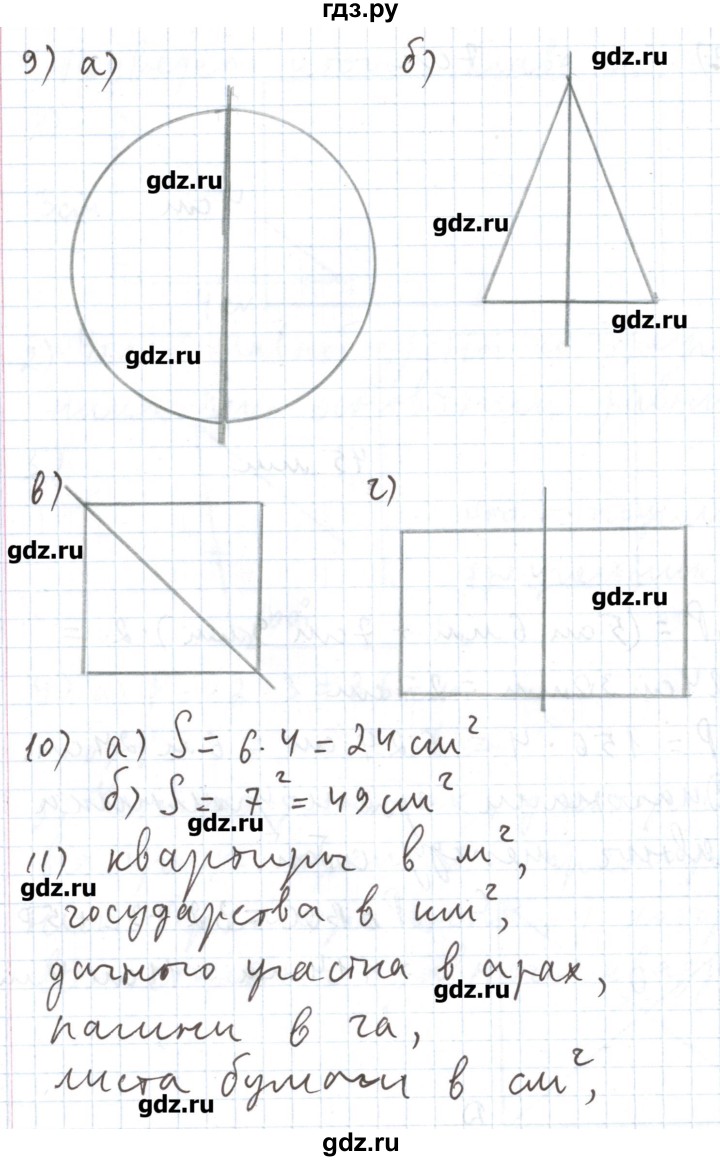 гдз.ру
9) а)
б)
gdz.ru
gdz.ru
gdz.ru
gdz.ru
gdz.ru
в)
г)
gdz.ru
gdz.ru
10) а) S = 6 · 4 = 24 см²
б) S = 7² = 49 см²
gdz.ru
11) квартиры в м²,
gdz.ru
государства в км²,
дачного участка в арах,
gdz.ru
пашни в га,
листа бумаги в см²,
gdz.ru
gdz.ru